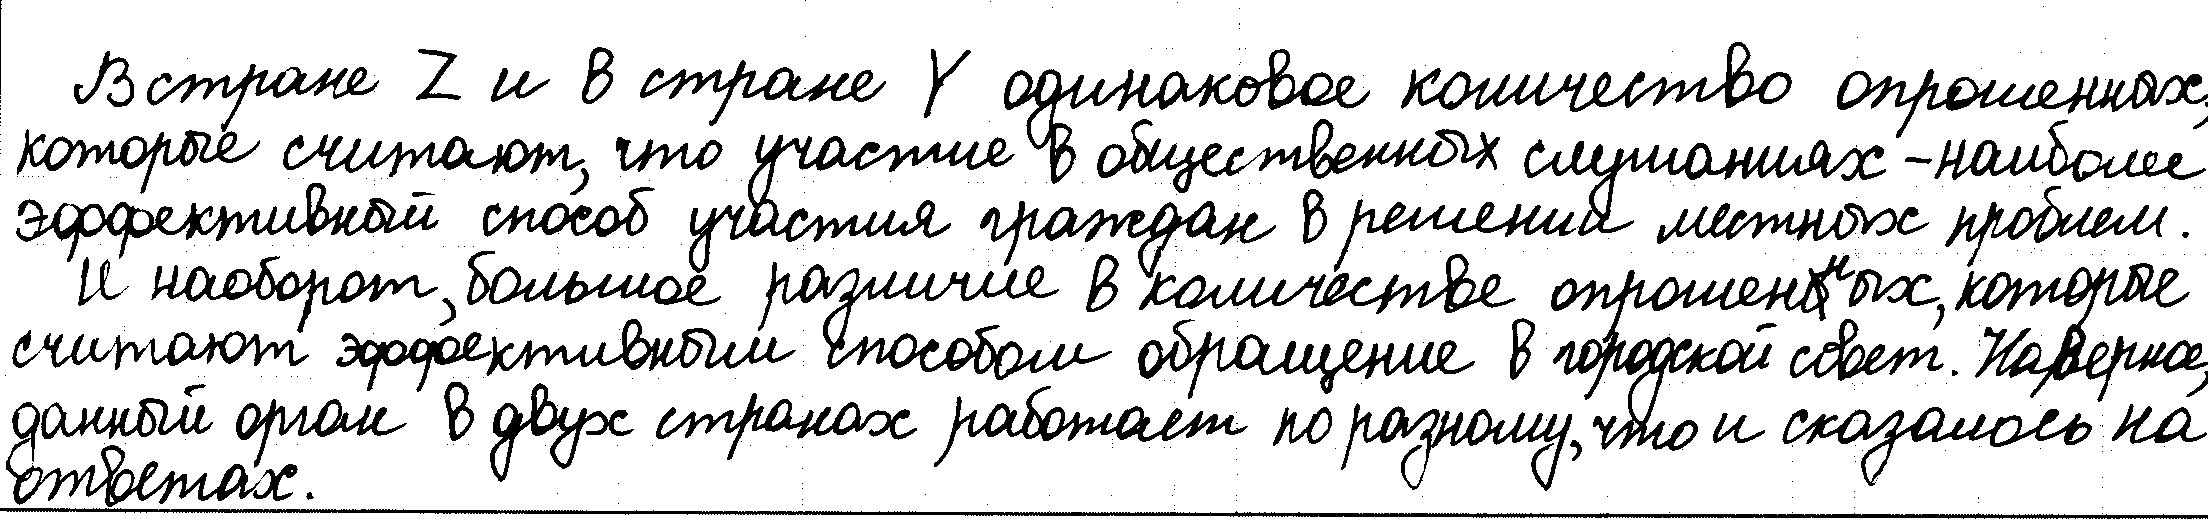 В стране Z и в стране Y одинаковое количество опрошенных,
которые считают, что участие в общественных слушаниях - наиболее
эффективный способ участия граждан в решении местных проблем.
И наоборот, большое различие в количестве опрошенных, которые
считают эффективным способом обращение в городской совет. Наверное,
данный орган в двух странах работает по разному, что и сказалось на
ответах.